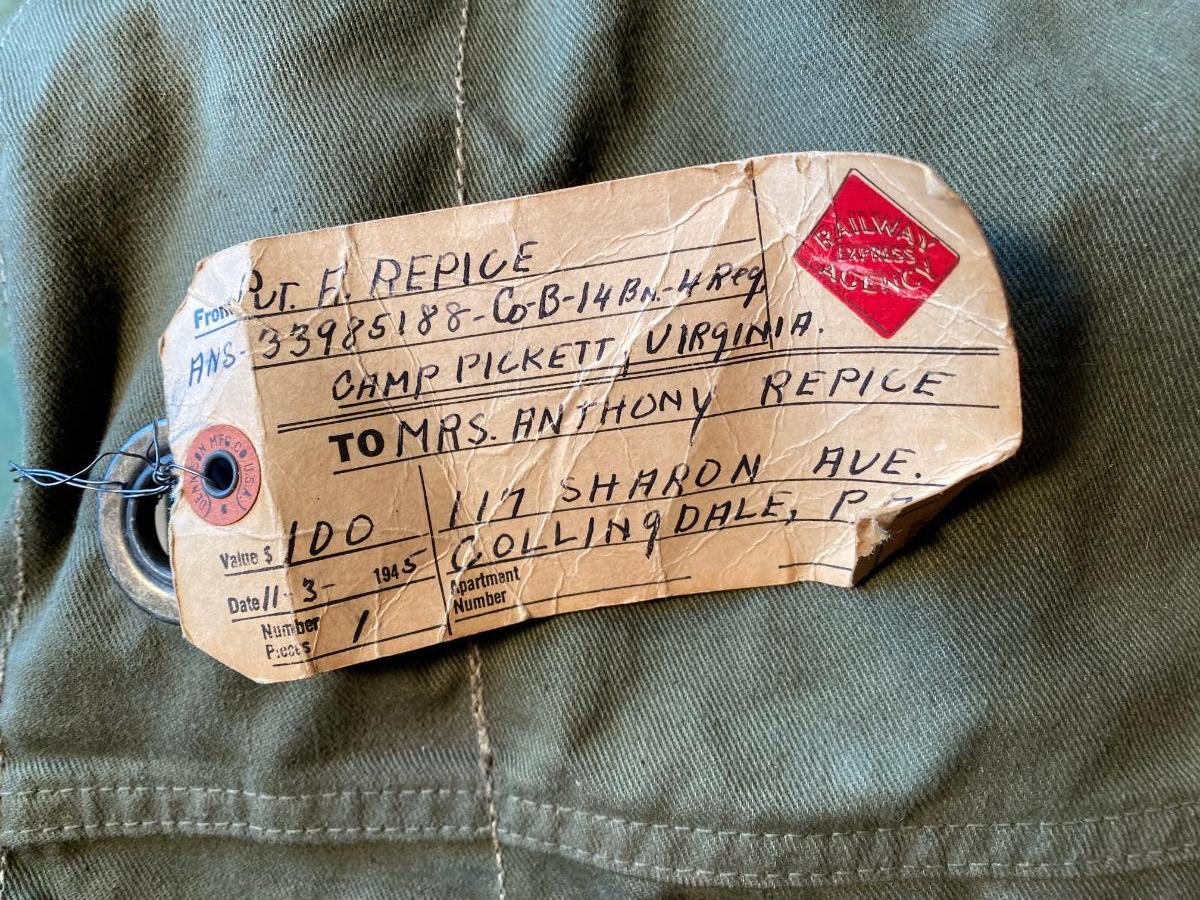 From PVT. F. REPICE
ANS- 33985188-Co-B-14 Bn.-4 Reg.
CAMP PICKETT, VIRGINIA.
RAILWAY
EXPRESS
AGENCY
TO MRS. ANTHONY REPICE
117 SHARON AVE.
COLLINGDALE, PA
Apartment
Number
Value $ 100
Date 11-3- 1945
Number
Pieces 1
DENNISON MFG. CO. U.S.A.